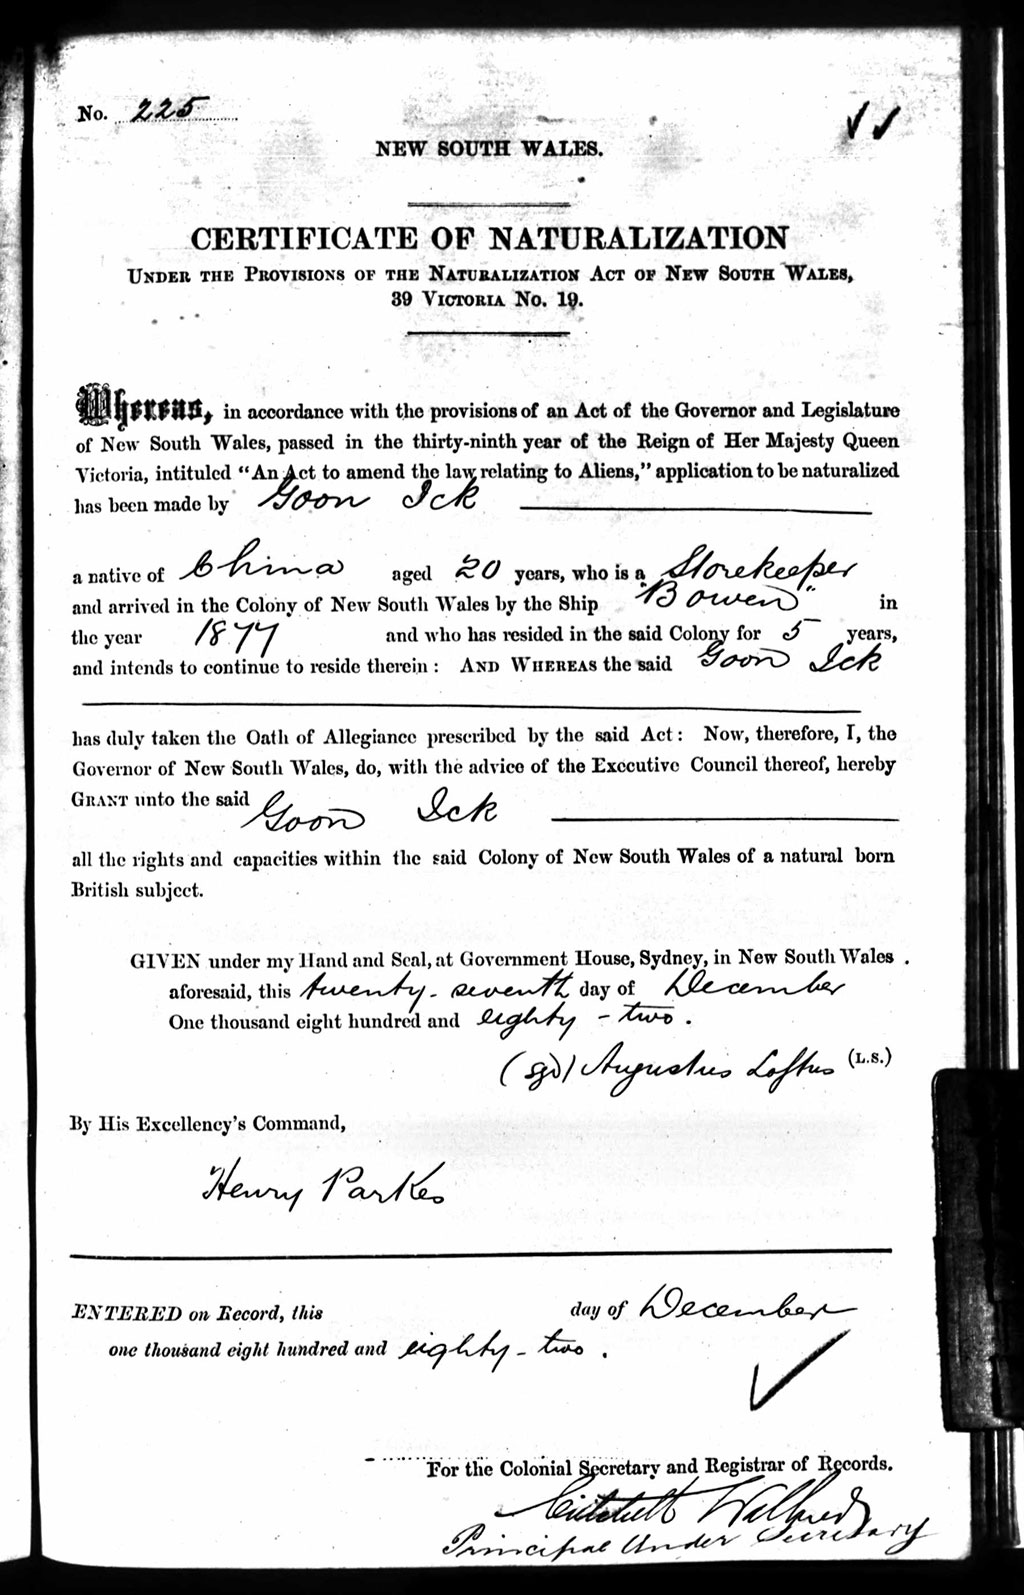 No. 225
NEW SOUTH WALES.
CERTIFICATE OF NATURALIZATION
UNDER THE PROVISIONS OF THE NATURALIZATION ACT OF NEW SOUTH WALES,
39 VICTORIA No. 19.
Whereas, in accordance with the provisions of an Act of the Governor and Legislature
of New South Wales, passed in the thirty-ninth year of the Reign of Her Majesty Queen
Victoria, intituled "An Act to amend the law relating to Aliens," application to be naturalized
has been made by Goon Ick
a native of China aged 20 years, who is a Storekeeper
and arrived in the Colony of New South Wales by the Ship "Bowen" in
the year 1877 and who has resided in the said Colony for 5 years,
and intends to continue to reside therein : AND WHEREAS the said Goon Ick
has duly taken the Oath of Allegiance prescribed by the said Act : Now, therefore, I, the
Governor of New South Wales, do, with the advice of the Executive Council thereof, hereby
GRANT unto the said Goon Ick
all the rights and capacities within the said Colony of New South Wales of a natural born
British subject.
GIVEN under my Hand and Seal, at Government House, Sydney, in New South Wales
aforesaid, this twenty-seventh day of December
One thousand eight hundred and eighty-two.
(sgd) Augustus Loftus (L.S.)
By His Excellency's Command,
Henry Parkes
ENTERED on Record, this day of December
one thousand eight hundred and eighty-two.
For the Colonial Secretary and Registrar of Records.
Principal Under Secretary